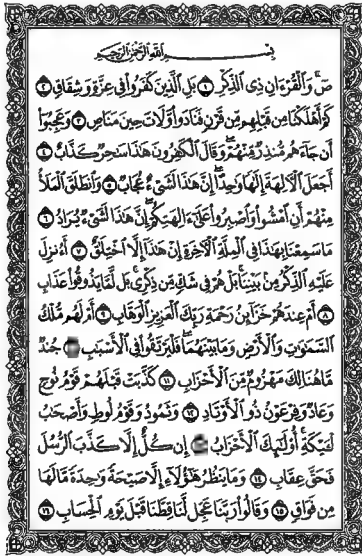 بسم الله الرحمن الرحيم
ص وَالْقُرْءَانِ ذِى الذِّكْرِ ١ بَلِ الَّذِينَ كَفَرُوا فِى عِزَّةٍ وَشِقَاقٍ ٢
كَمْ أَهْلَكْنَا مِن قَبْلِهِم مِّن قَرْنٍ فَنَادَوا وَّلَاتَ حِينَ مَنَاصٍ ٣ وَعَجِبُوا
أَن جَاءَهُم مُّنذِرٌ مِّنْهُمْ وَقَالَ الْكَٰفِرُونَ هَٰذَا سَٰحِرٌ كَذَّابٌ ٤
أَجَعَلَ الْءَالِهَةَ إِلَٰهًا وَٰحِدًا إِنَّ هَٰذَا لَشَىْءٌ عُجَابٌ ٥ وَانطَلَقَ الْمَلَأُ
مِنْهُمْ أَنِ امْشُوا وَاصْبِرُوا عَلَىٰ ءَالِهَتِكُمْ إِنَّ هَٰذَا لَشَىْءٌ يُرَادُ ٦
مَا سَمِعْنَا بِهَٰذَا فِى الْمِلَّةِ الْءَاخِرَةِ إِنْ هَٰذَا إِلَّا اخْتِلَٰقٌ ٧ أَءُنزِلَ
عَلَيْهِ الذِّكْرُ مِن بَيْنِنَا بَلْ هُمْ فِى شَكٍّ مِّن ذِكْرِى بَل لَّمَّا يَذُوقُوا عَذَابِ
٨ أَمْ عِندَهُمْ خَزَائِنُ رَحْمَةِ رَبِّكَ الْعَزِيزِ الْوَهَّابِ ٩ أَمْ لَهُم مُّلْكُ
السَّمَٰوَٰتِ وَالْأَرْضِ وَمَا بَيْنَهُمَا فَلْيَرْتَقُوا فِى الْأَسْبَٰبِ جُندٌ
مَّا هُنَالِكَ مَهْزُومٌ مِّنَ الْأَحْزَابِ ١١ كَذَّبَتْ قَبْلَهُمْ قَوْمُ نُوحٍ
وَعَادٌ وَفِرْعَوْنُ ذُو الْأَوْتَادِ ١٢ وَثَمُودُ وَقَوْمُ لُوطٍ وَأَصْحَٰبُ
لْـَٔيْكَةِ أُولَٰئِكَ الْأَحْزَابُ إِن كُلٌّ إِلَّا كَذَّبَ الرُّسُلَ
فَحَقَّ عِقَابِ ١٤ وَمَا يَنظُرُ هَٰؤُلَاءِ إِلَّا صَيْحَةً وَٰحِدَةً مَّا لَهَا
مِن فَوَاقٍ ١٥ وَقَالُوا رَبَّنَا عَجِّل لَّنَا قِطَّنَا قَبْلَ يَوْمِ الْحِسَابِ ١٦